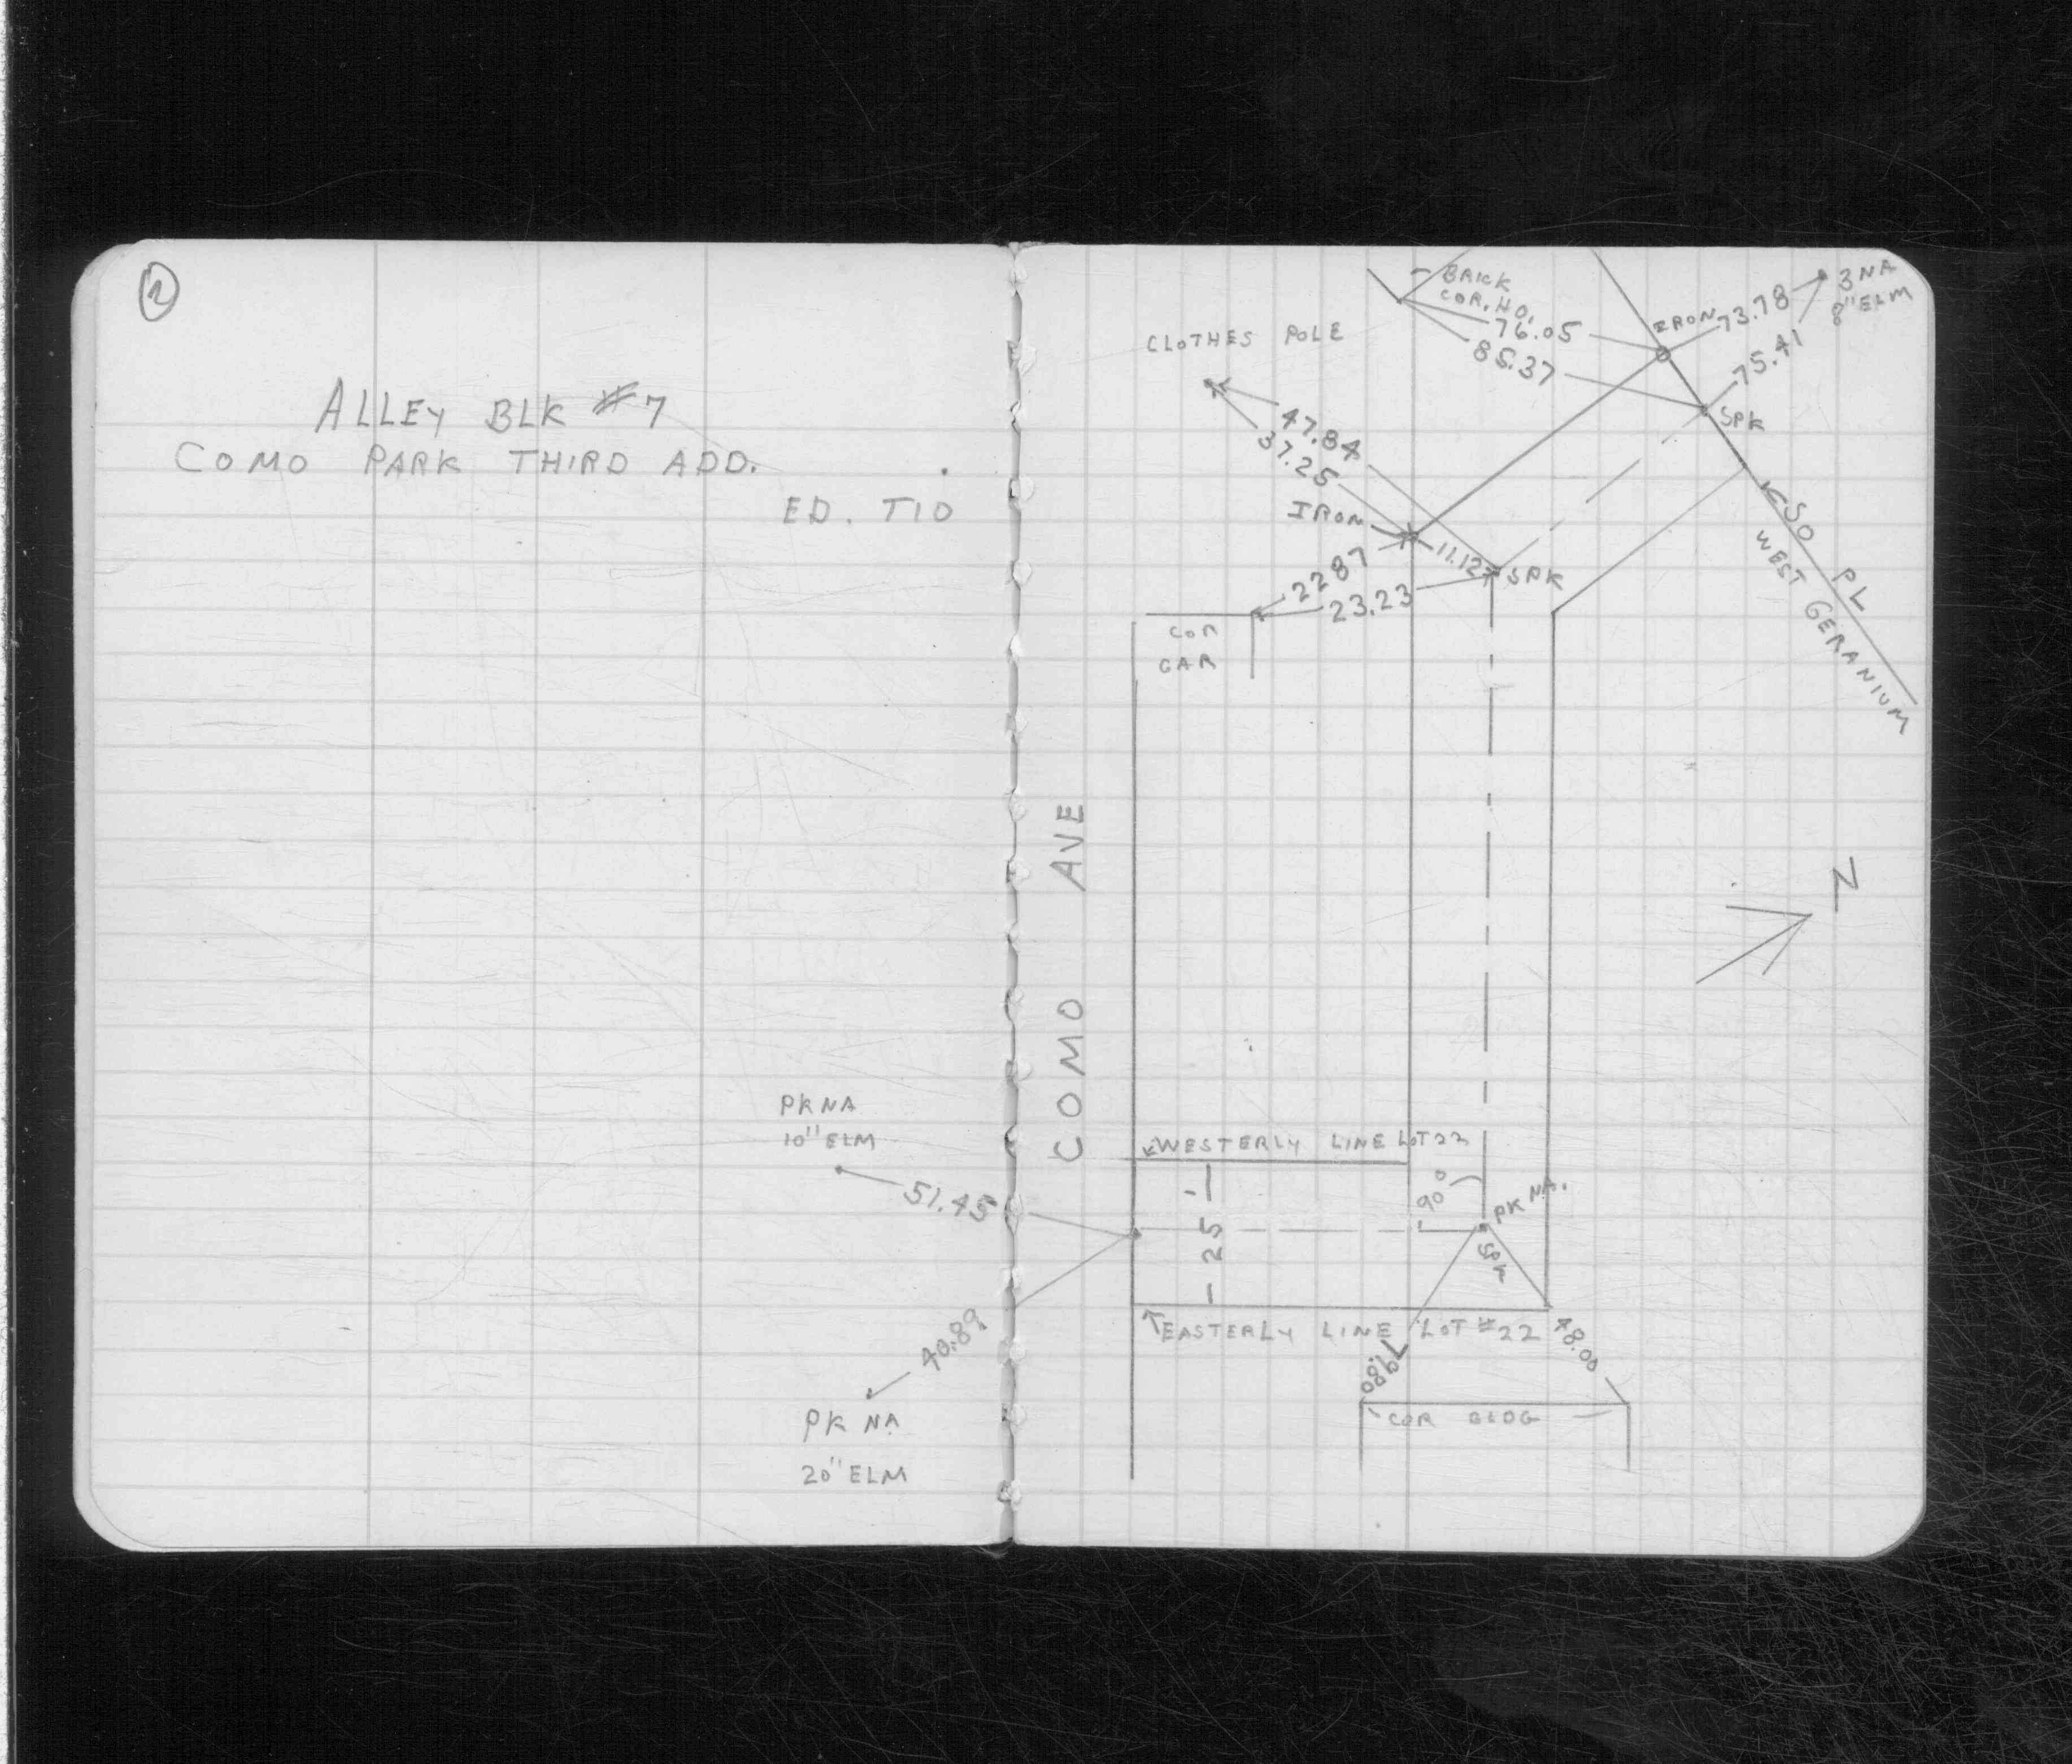 2
ALLEY BLK #7
COMO PARK THIRD ADD.
ED. TIO
PK NA
10" ELM
51.45
40.89
PK NA
20" ELM
COMO AVE
BRICK
COR. HO.
76.05
85.37
IRON
73.78
3 NA
8" ELM
75.41
SPK
CLOTHES POLE
47.84
37.25
IRON
11.12
SPK
22.87
23.23
COR
GAR
SO PL
WEST GERANIUM
N
WESTERLY LINE LOT 22
90°
PK NA.
SPK
25
EASTERLY LINE LOT #22
48.00
COR BLDG